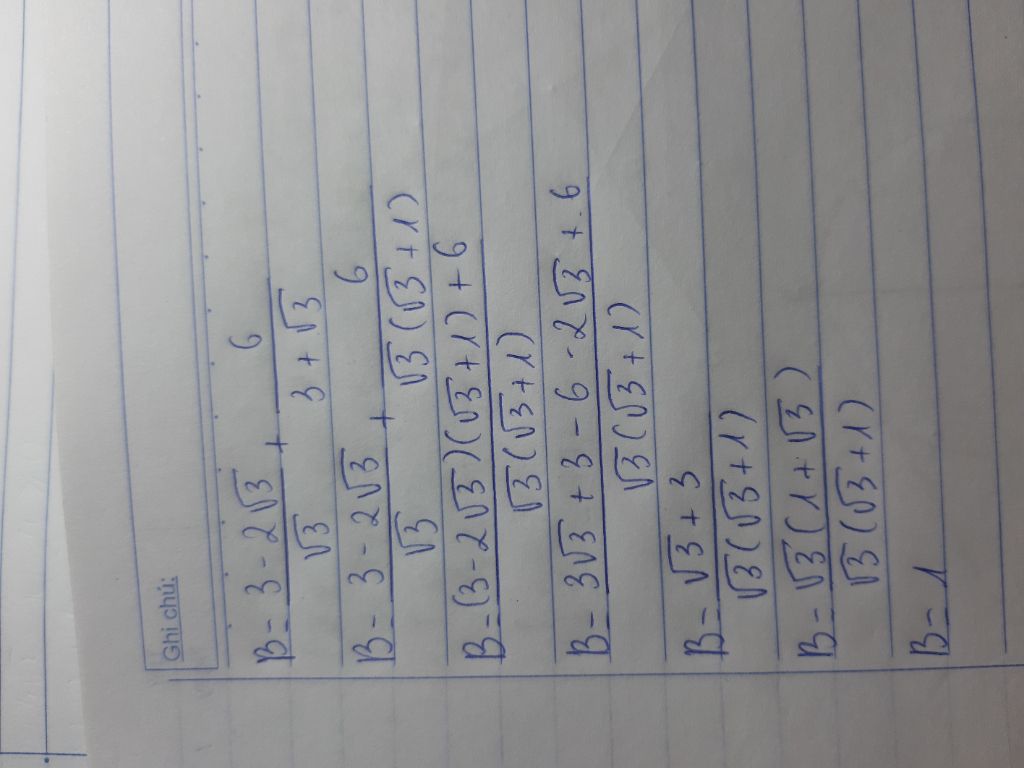 Ghi chú:
B = \frac{3 - 2\sqrt{3}}{\sqrt{3}} + \frac{6}{3 + \sqrt{3}}
B = \frac{3 - 2\sqrt{3}}{\sqrt{3}} + \frac{6}{\sqrt{3}(\sqrt{3} + 1)}
B = \frac{(3 - 2\sqrt{3})(\sqrt{3} + 1) + 6}{\sqrt{3}(\sqrt{3} + 1)}
B = \frac{3\sqrt{3} + 3 - 6 - 2\sqrt{3} + 6}{\sqrt{3}(\sqrt{3} + 1)}
B = \frac{\sqrt{3} + 3}{\sqrt{3}(\sqrt{3} + 1)}
B = \frac{\sqrt{3}(1 + \sqrt{3})}{\sqrt{3}(\sqrt{3} + 1)}
B = 1